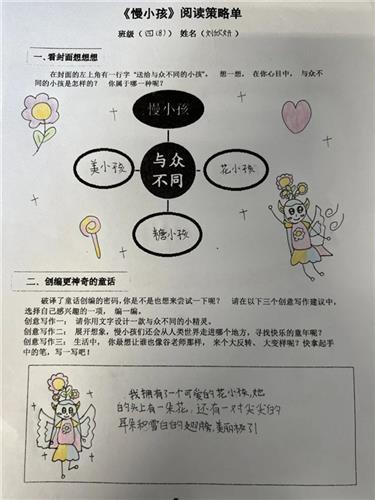 《慢小孩》阅读策略单
班级（四(8)） 姓名（刘欣妍）
一、看封面想想想
在封面的左上角有一行字“送给与众不同的小孩”， 想一想， 在你心目中， 与众不
同的小孩是怎样的？ 你属于哪一种呢？
慢小孩
美小孩
与众
不同
花小孩
糖小孩
二、创编更神奇的童话
破译了童话创编的密码，你是不是也想来尝试一下呢？ 请在以下三个创意写作建议中，
选择自己感兴趣的一项， 编一编，
创意写作一： 请你用文字设计一款与众不同的小精灵。
创意写作二： 展开想象，慢小孩们还会从人类世界走进哪个地方，寻找快乐的童年呢？
创意写作三： 生活中， 你最想让谁也像谷老师那样， 来个大反转、 大变样呢？快拿起手
中的笔，写一写吧！
我拥有了一个可爱的花小孩，她
的头上有一朵花，还有一对尖尖的
耳朵和雪白的翅膀，美丽极了！